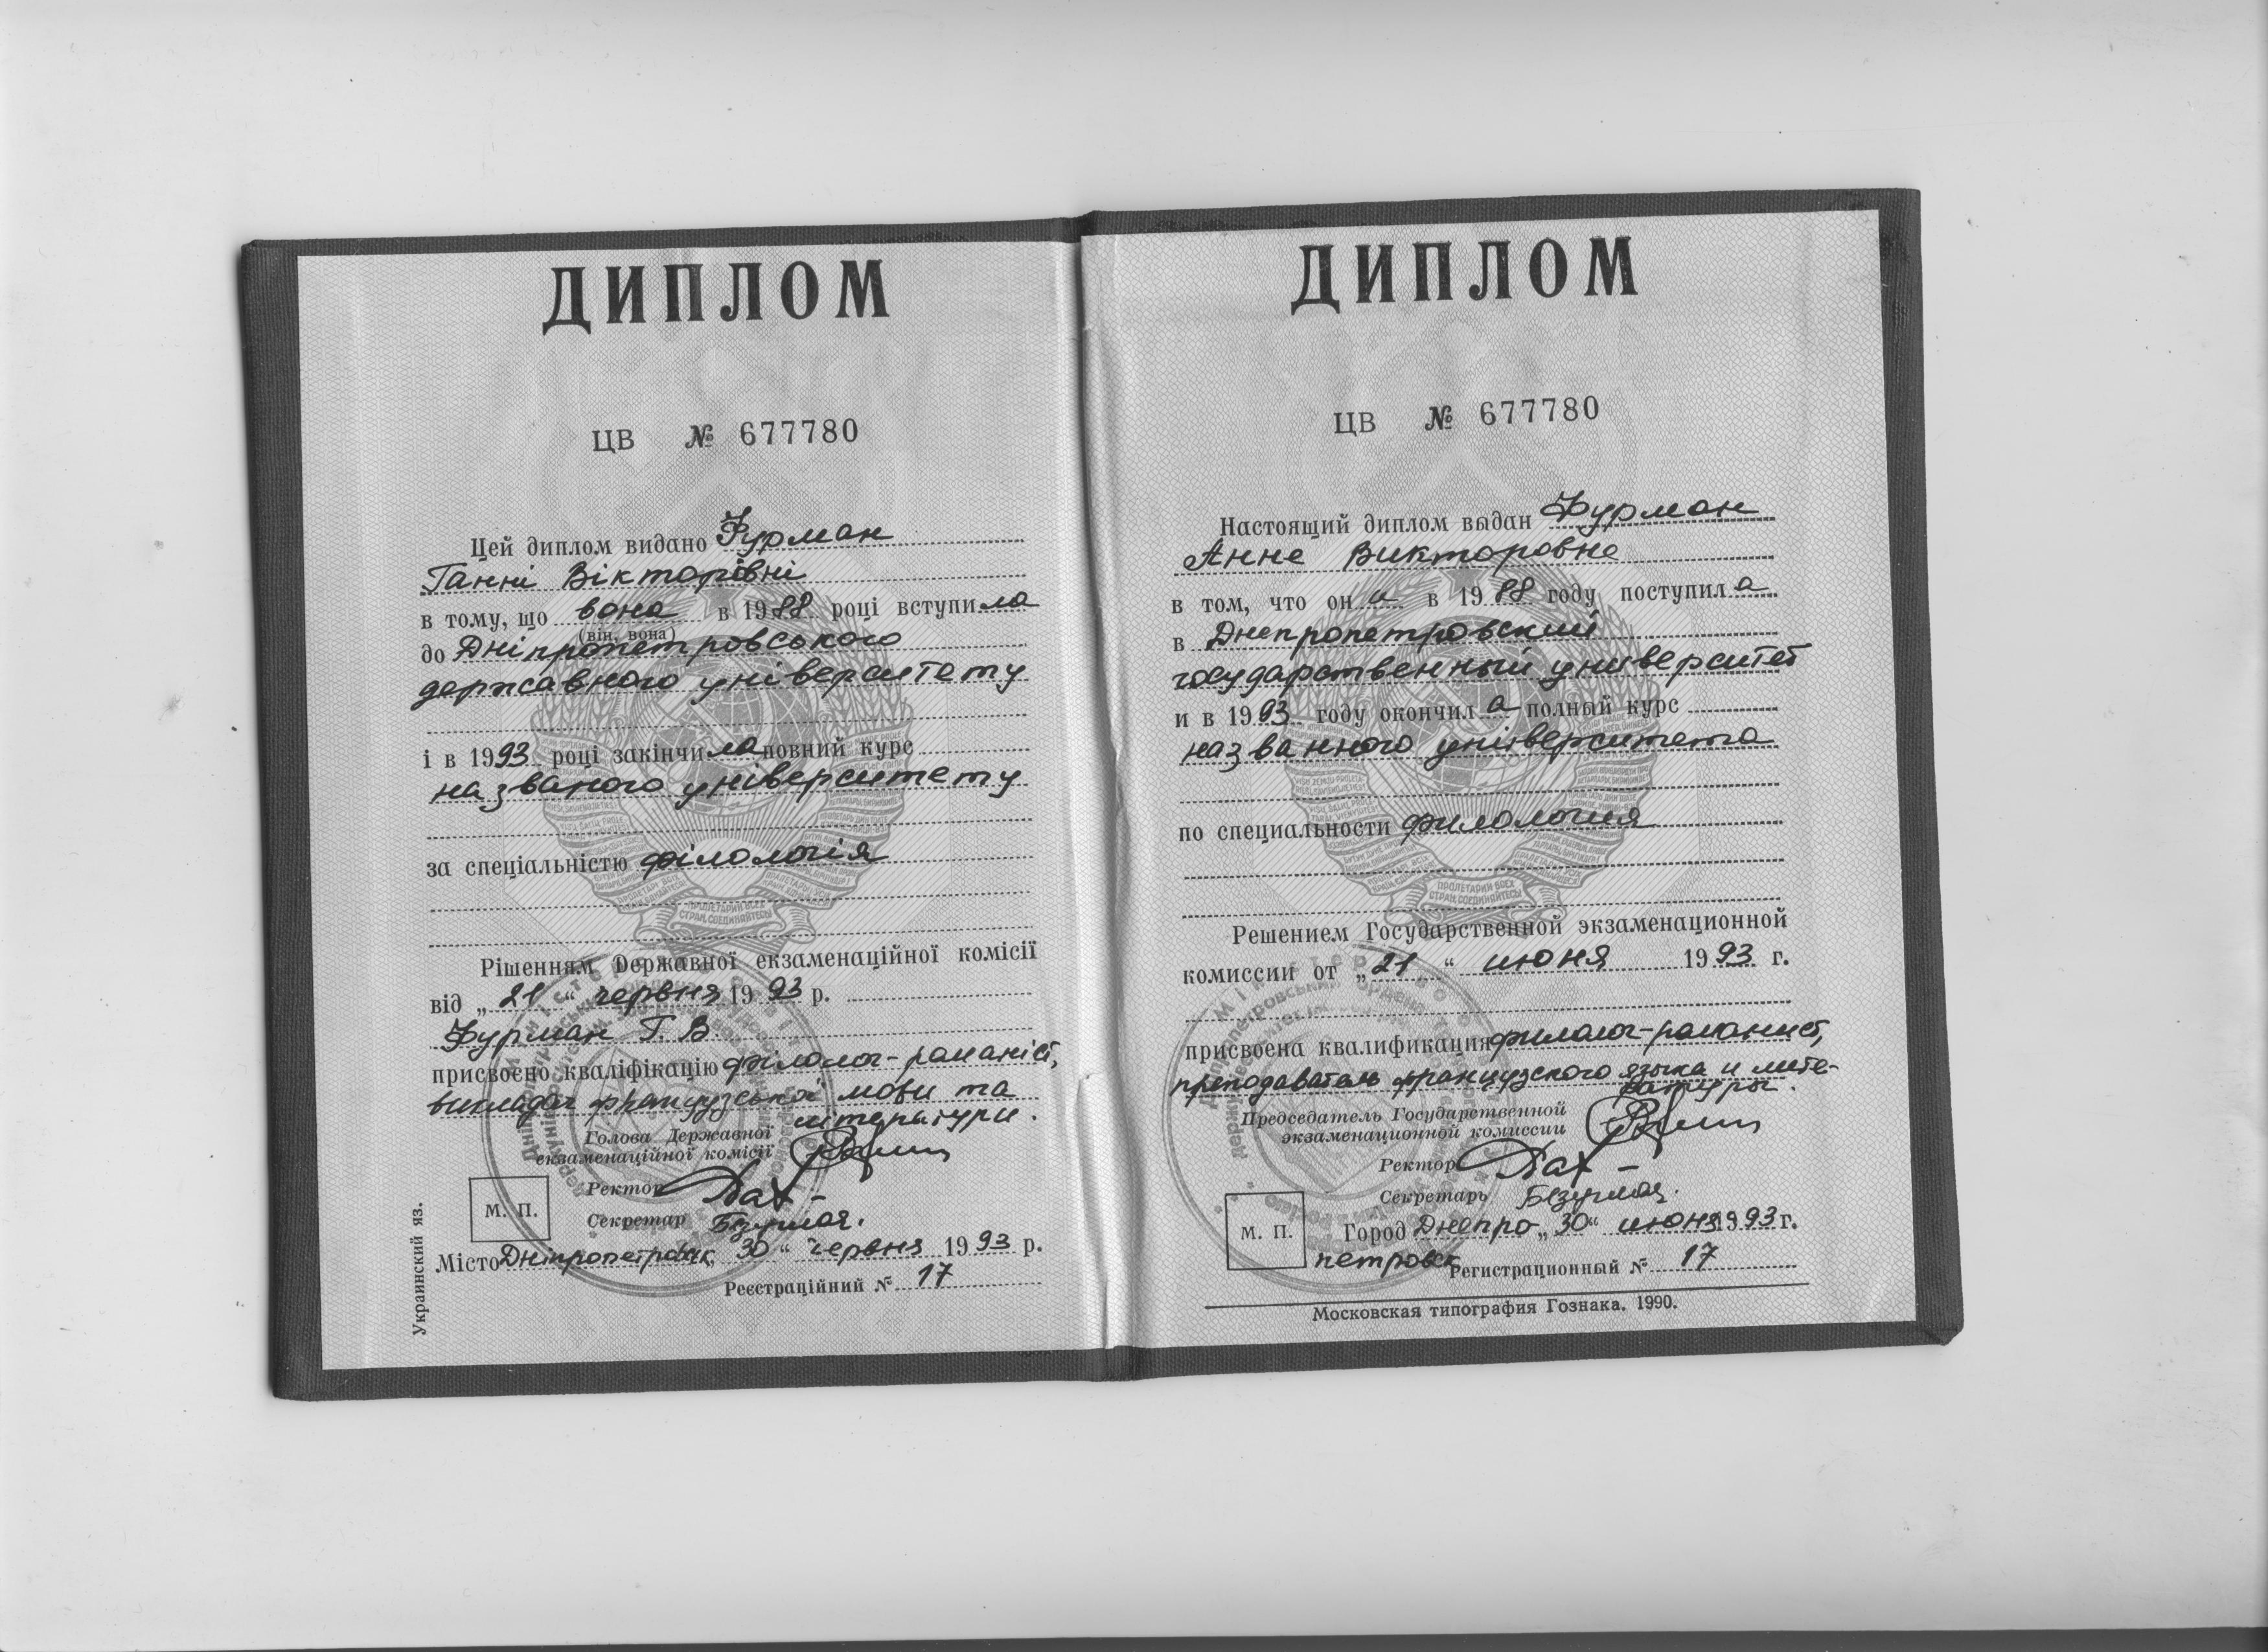 ДИПЛОМ
ЦВ № 677780
Цей диплом видано Фурман
Ганні Вікторівні
в тому, що вона в 1988 році вступила
(він, вона)
до Дніпропетровського
державного університету
і в 1993 році закінчила повний курс
названого університету
за спеціальністю філологія
Рішенням Державної екзаменаційної комісії
від „21“ червня 1993 р.
Фурман Г. В
присвоєно кваліфікацію філолог-романіст,
викладач французської мови та
літератури.
Голова Державної
екзаменаційної комісії
Ректор
Секретар
М. П.
Місто Дніпропетровськ „30“ червня 1993 р.
Реєстраційний № 17
Украинский яз.
ПРОЛЕТАРИИ ВСЕХ
СТРАН, СОЕДИНЯЙТЕСЬ!
ДИПЛОМ
ЦВ № 677780
Настоящий диплом выдан Фурман
Анне Викторовне
в том, что она в 1988 году поступила
в Днепропетровский
государственный университет
и в 1993 году окончила полный курс
названного університета
по специальности филология
ПРОЛЕТАРИИ ВСЕХ
СТРАН, СОЕДИНЯЙТЕСЬ!
Решением Государственной экзаменационной
комиссии от „21“ июня 1993 г.
присвоена квалификация филолог-романист,
преподаватель французского языка и лите-
ратуры.
Председатель Государственной
экзаменационной комиссии
Ректор
Секретарь
М. П.
Город Днепро „30“ июня 1993 г.
петровск
Регистрационный № 17
Московская типография Гознака. 1990.